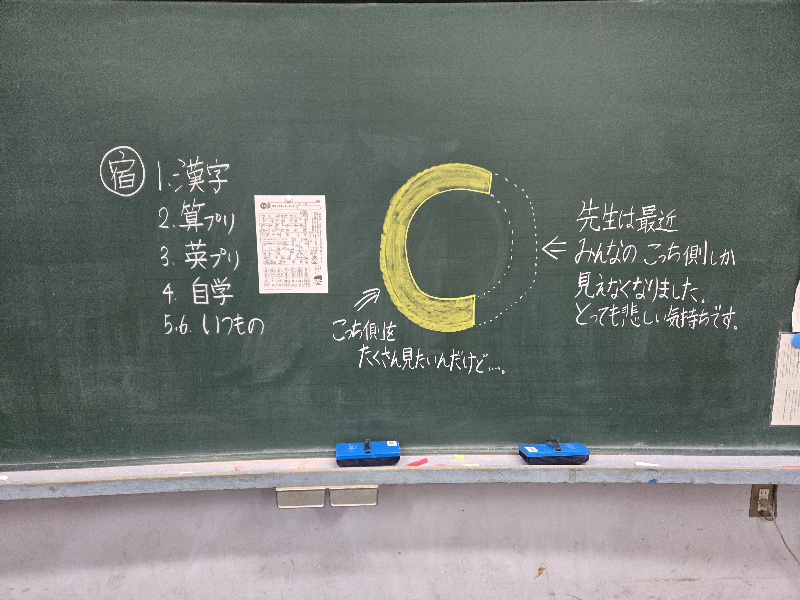 宿
1.漢字
2.算プリ
3.英プリ
4.自学
5.6.いつもの
こっち側を
たくさん見たいんだけど…。
先生は最近
みんなのこっち側しか
見えなくなりました。
とっても悲しい気持ちです。